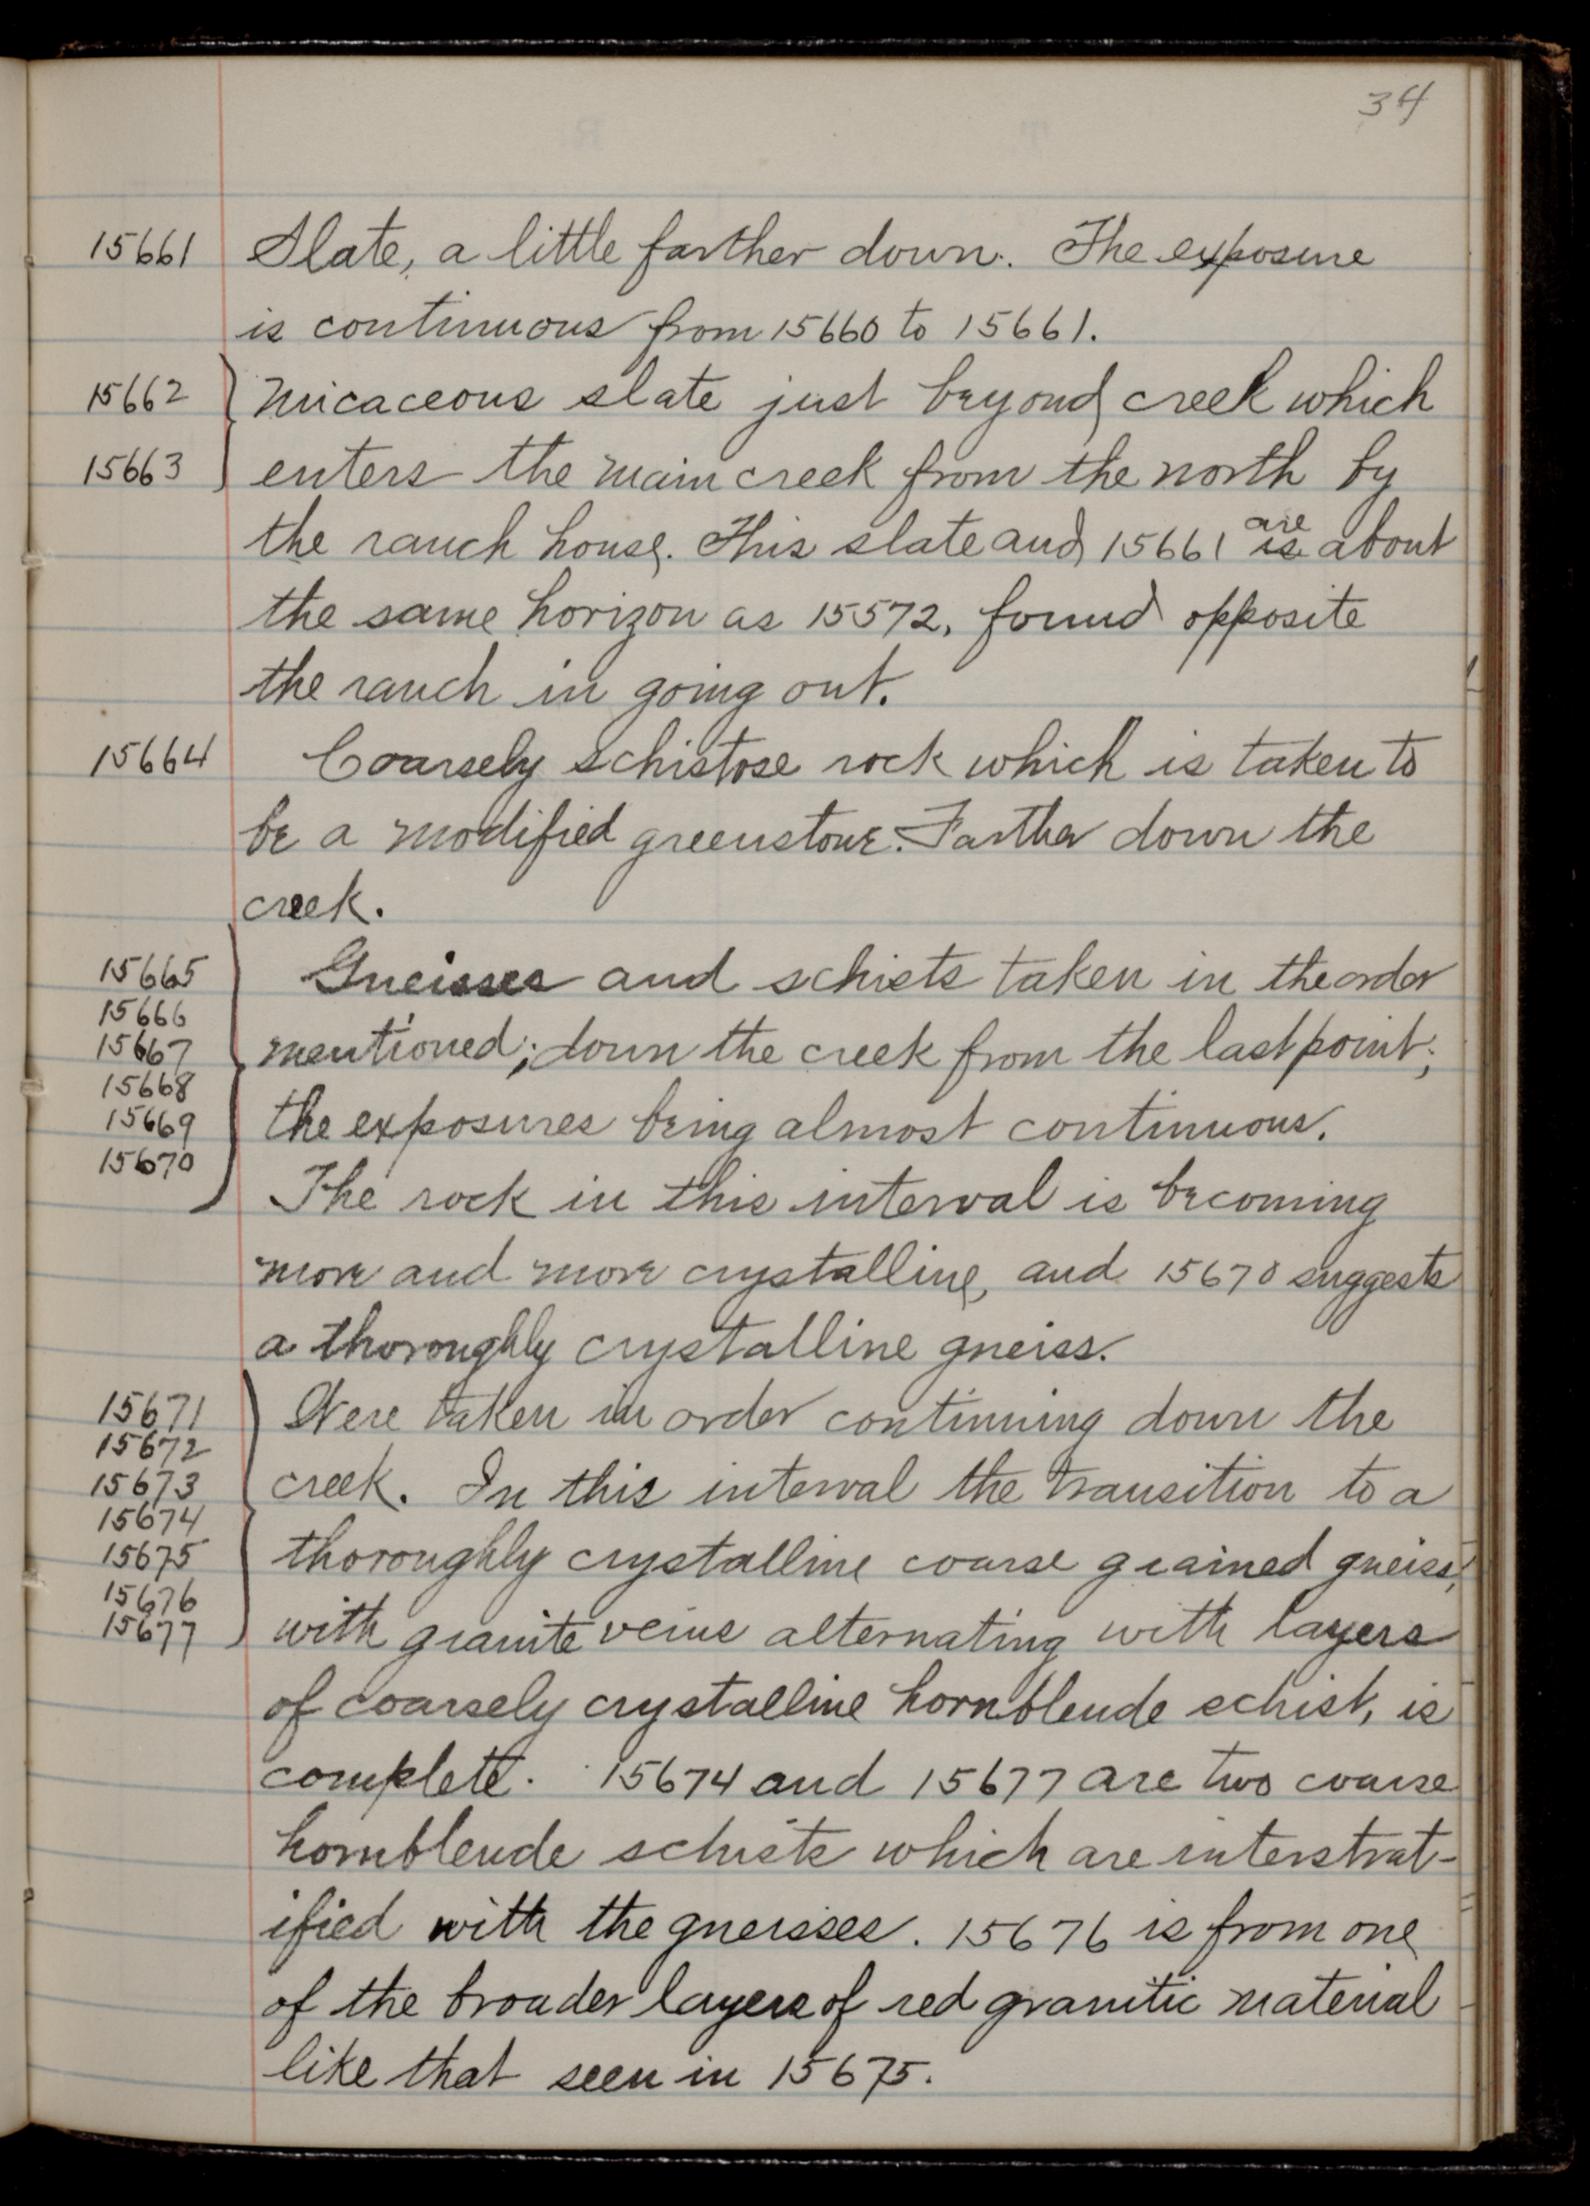 34
15661 Slate, a little farther down. The exposure
is continuous from 15660 to 15661.
15662 Micaceous slate just beyond creek which
15663 enters the main creek from the north by
the ranch house. This slate and 15661 are is about
the same horizon as 15572, found opposite
the ranch in going out.
15664 Coarsely schistose rock which is taken to
be a modified greenstone. Farther down the
creek.
15665 Gneisses and schists taken in the order
15666
15667 mentioned; down the creek from the last point;
15668
15669 the exposures being almost continuous.
15670
The rock in this interval is becoming
more and more crystalline, and 15670 suggests
a thoroughly crystalline gneiss.
15671 Were taken in order continuing down the
15672
15673 creek. In this interval the transition to a
15674
15675 thoroughly crystalline coarse grained gneiss,
15676
15677 with granite veins alternating with layers
of coarsely crystalline hornblende schist, is
complete. 15674 and 15677 are two coarse
hornblende schists which are interstrat-
ified with the gneisses. 15676 is from one
of the broader layers of red granitic material
like that seen in 15675.